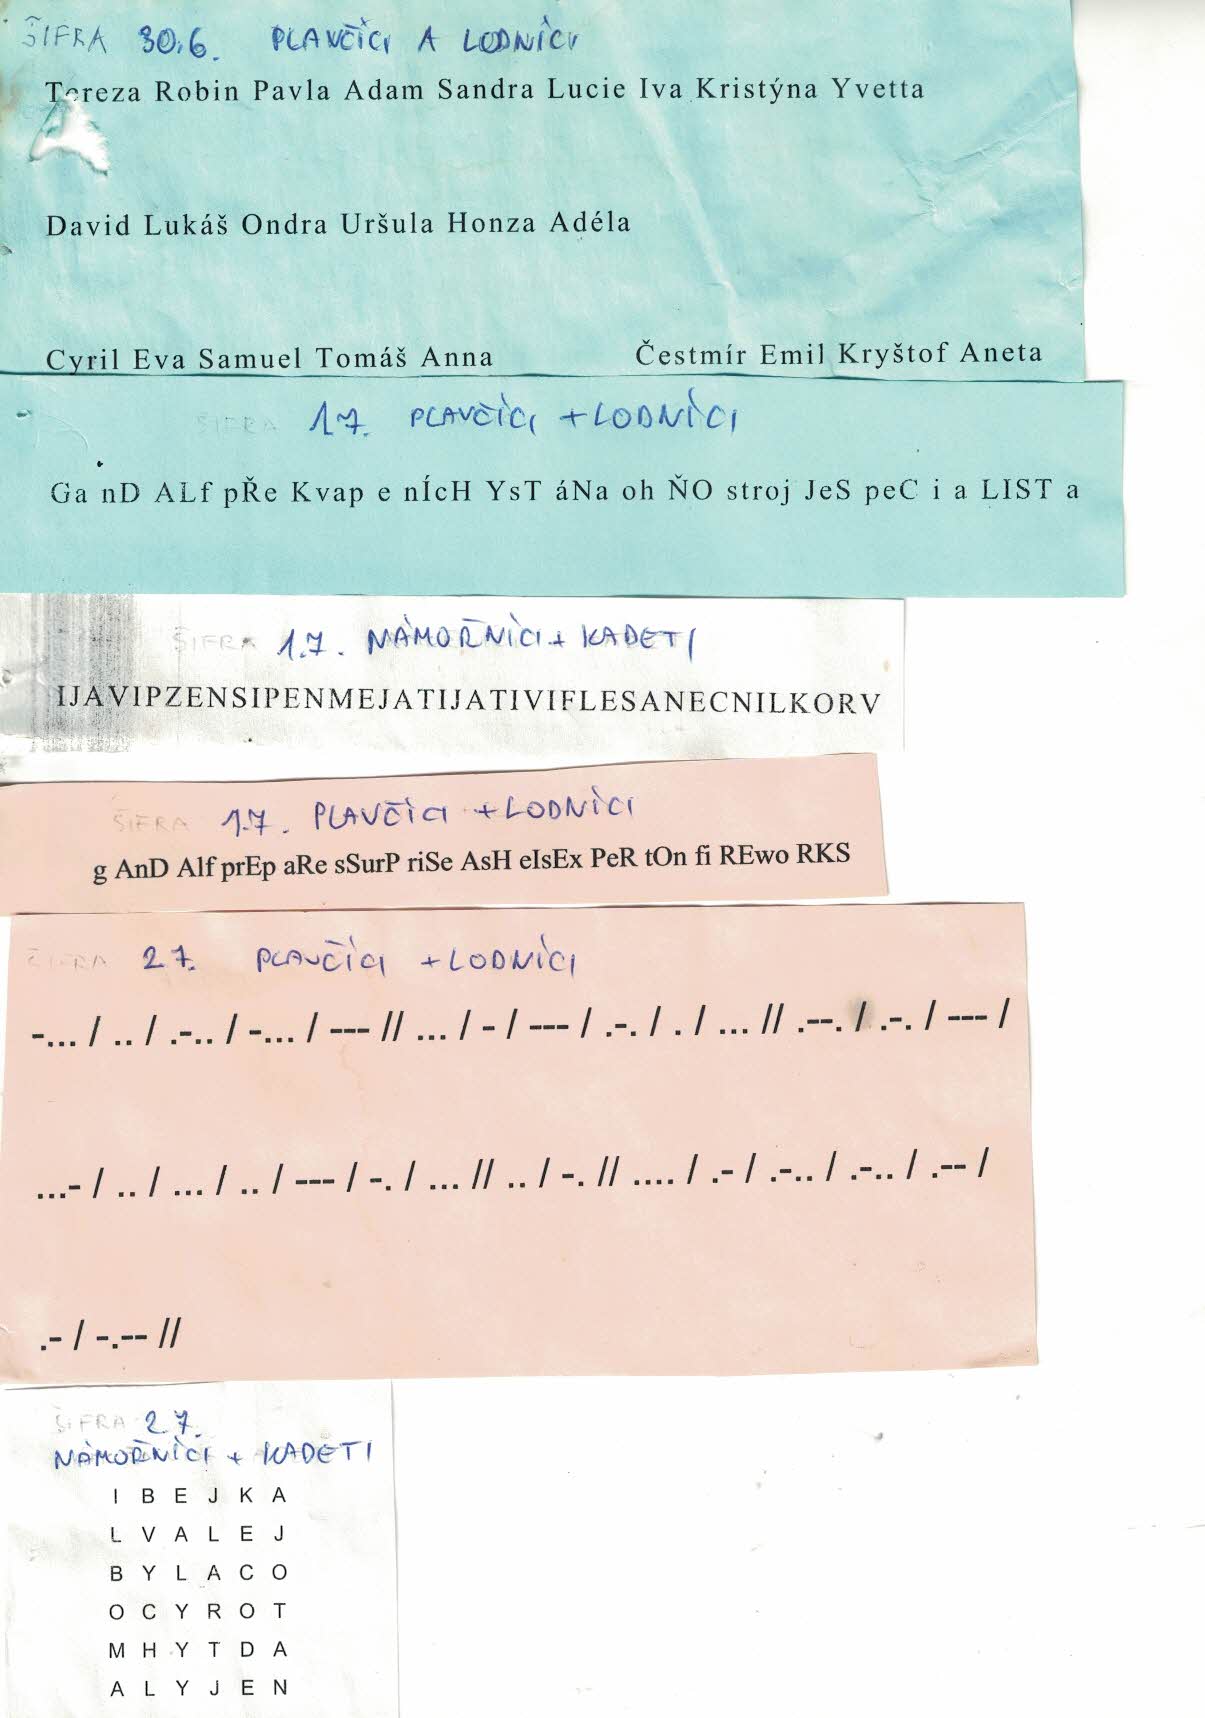 ŠIFRA 30.6. PLAVČÍCI A LODNÍCI
Tereza Robin Pavla Adam Sandra Lucie Iva Kristýna Yvetta
David Lukáš Ondra Uršula Honza Adéla
Cyril Eva Samuel Tomáš Anna Čestmír Emil Kryštof Aneta
ŠIFRA 1.7. PLAVČÍCI + LODNÍCI
Ga nD ALf pŘe Kvap e nÍcH YsT áNa oh ŇO stroj JeS peC i a LIST a
ŠIFRA 1.7. NÁMOŘNÍCI + KADETI
IJAVIPZENSIPENMEJATIJATIVIFLESANECNILKORV
ŠIFRA 1.7. PLAVČÍCI + LODNÍCI
g AnD Alf prEp aRe sSurP riSe AsH eIsEx PeR tOn fi REwo RKS
ŠIFRA 2.7. PLAVČÍCI + LODNÍCI
-... / .. / .-.. / -... / --- // ... / - / --- / .-. / . / ... // .--. / .-. / --- /
...- / .. / ... / .. / --- / -. / ... // .. / -. // .... / .- / .-.. / .-.. / .-- /
.- / -.-- //
ŠIFRA 2.7.
NÁMOŘNÍCI + KADETI
I B E J K A
L V A L E J
B Y L A C O
O C Y R O T
M H Y T D A
A L Y J E N